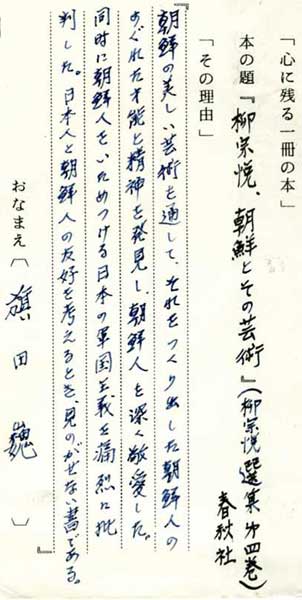 「心に残る一冊の本」
本の題『柳宗悦、朝鮮とその芸術』(柳宗悦選集第四巻)
春秋社
「その理由」
『朝鮮の美しい芸術を通して、それをつくり出した朝鮮人の
すぐれた才能と精神を発見し、朝鮮人を深く敬愛した。
同時に朝鮮人をいためつける日本の軍国主義を痛烈に批
判した。日本人と朝鮮人の友好を考えるとき、見のがせない書である。』
おなまえ〔旗田巍〕